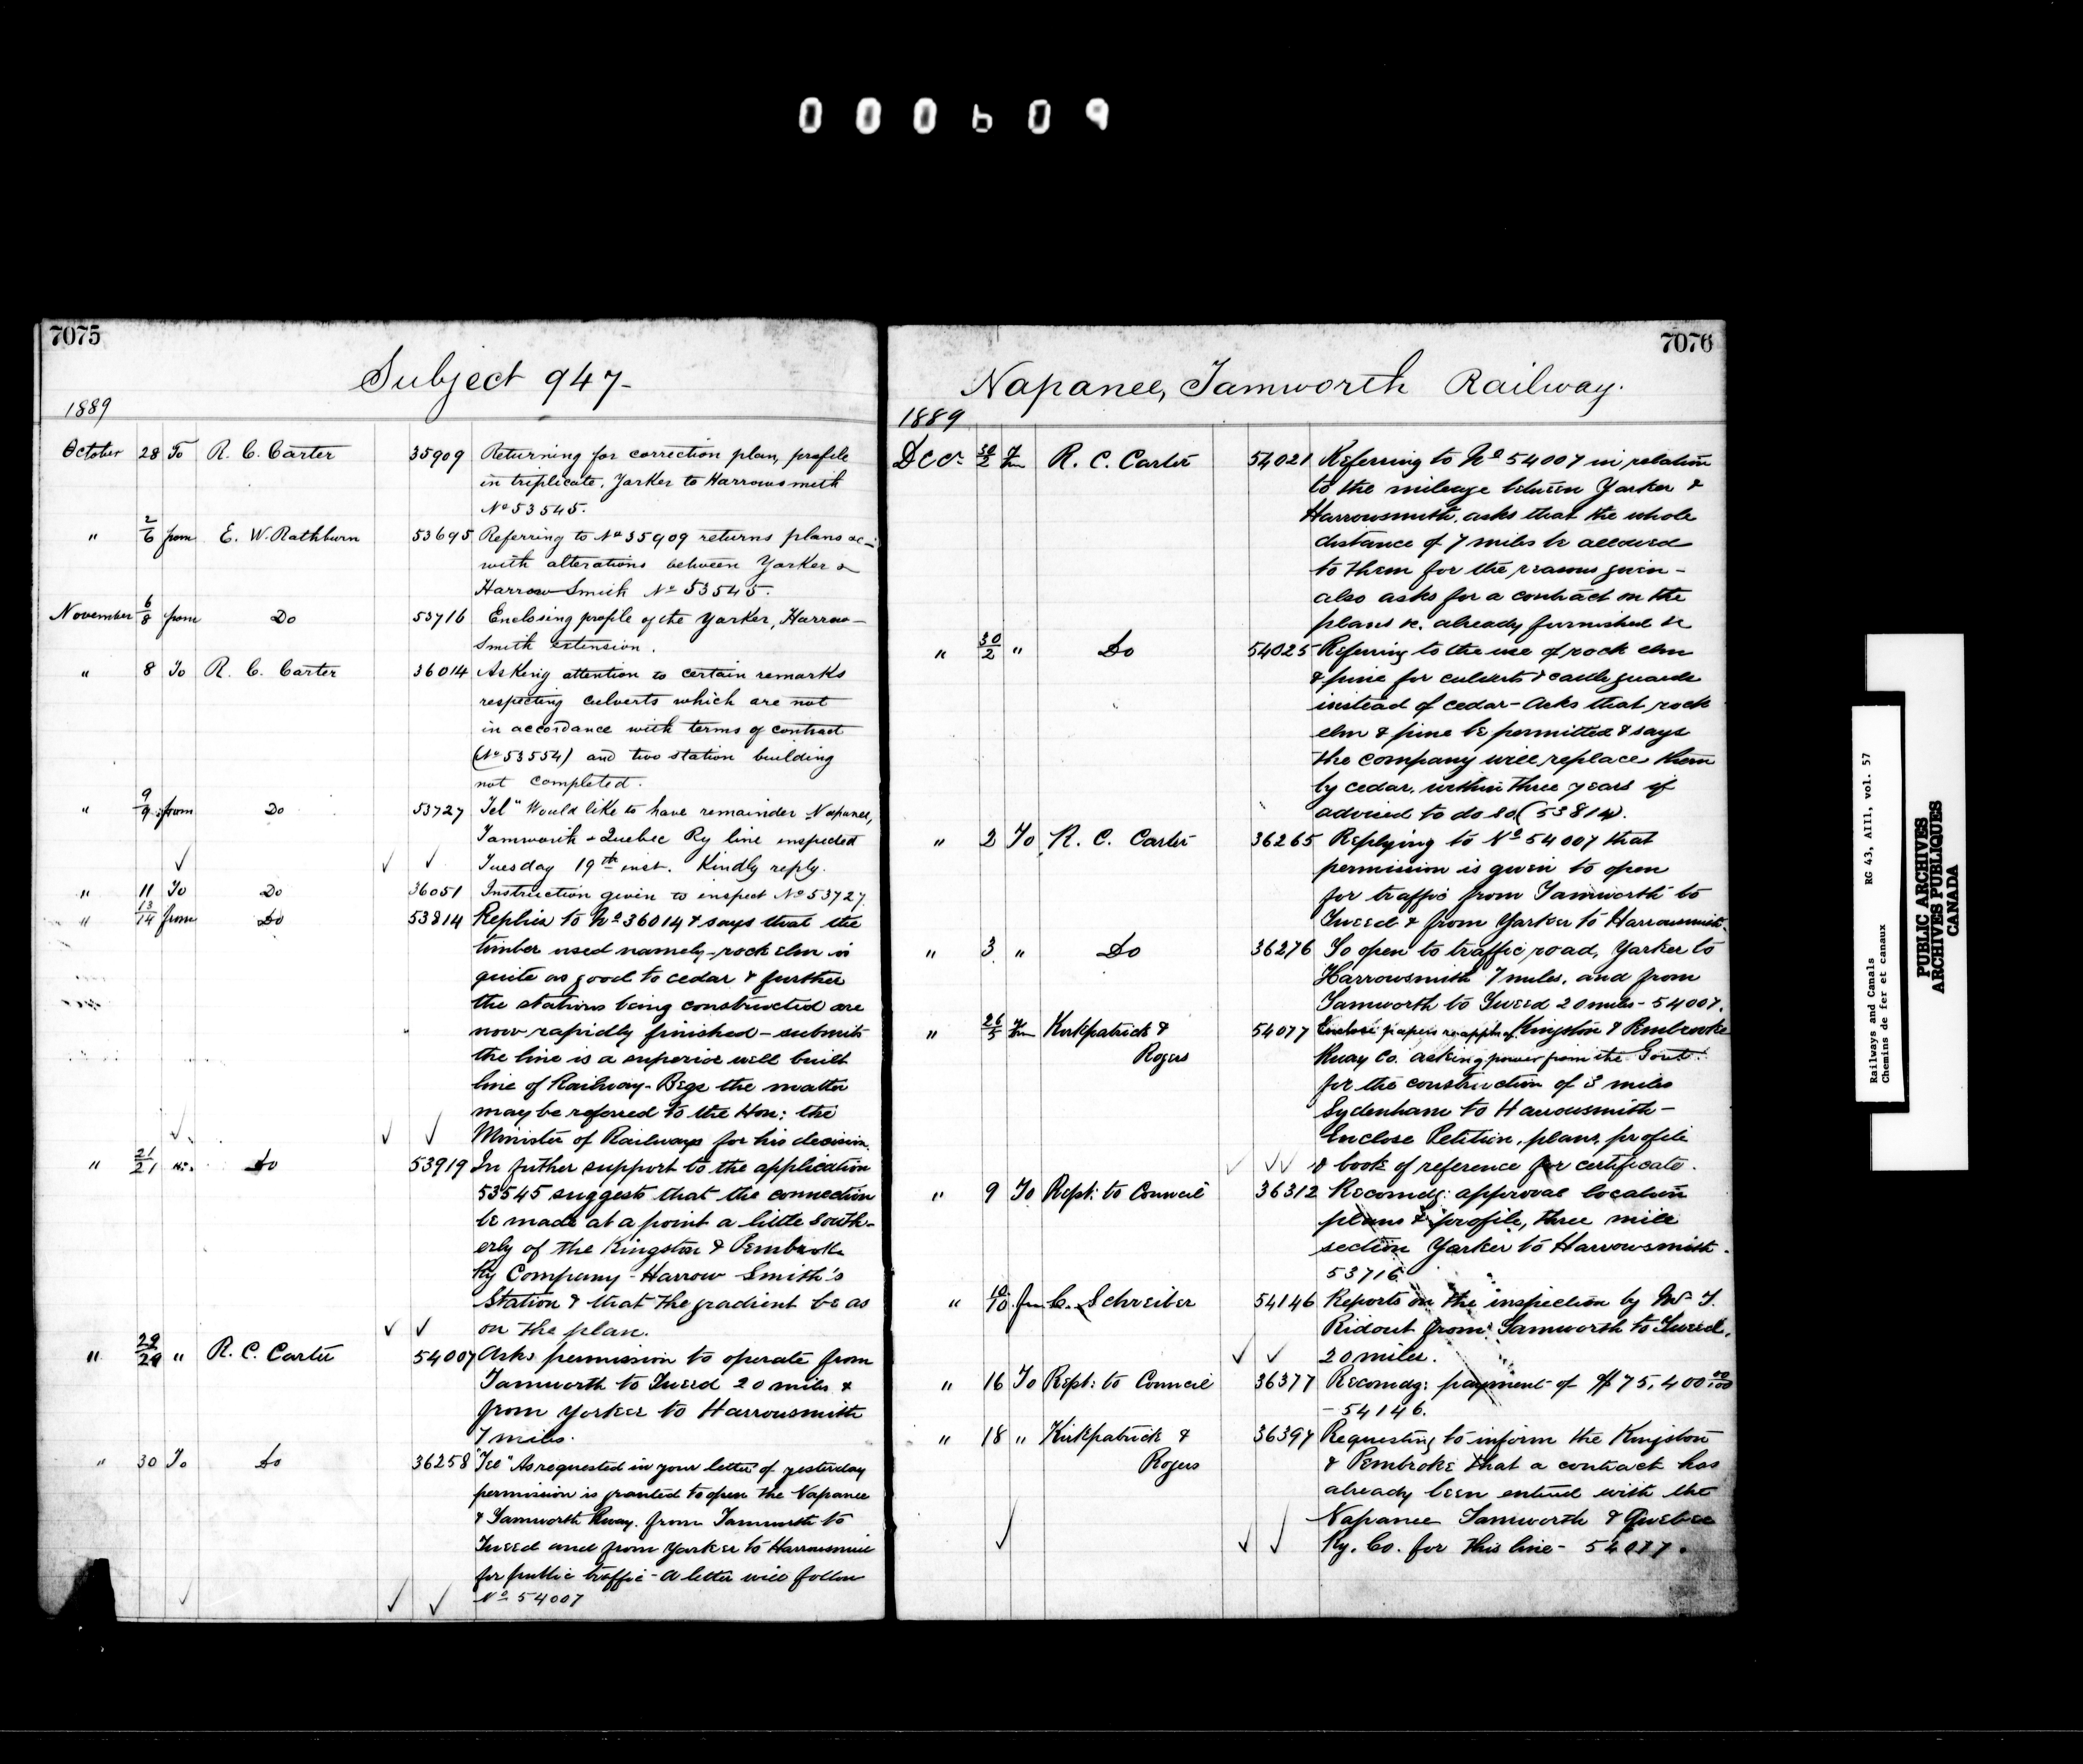 000609
7075
Subject 947-
1889
October 28 To R. C. Carter 35909 Returning for correction plan, profile
in triplicate, Yarker to Harrowsmith
No 53545.
" 2/6 from E. W. Rathburn 53695 Referring to No 35909 returns plans &c-
with alterations between Yarker &
Harrow Smith No 53545.
November 6/8 from Do 53716 Enclosing profile of the Yarker, Harrow-
Smith extension.
" 8 To R. C. Carter 36014 Asking attention to certain remarks
respecting culverts which are not
in accordance with terms of contract
(No 53554) and two station building
not completed.
" 9/9 from Do 53727 Tel "Would like to have remainder Napanee,
Tamworth & Quebec Ry line inspected
Tuesday 19th inst. Kindly reply.
" 11 To Do 36051 Instruction given to inspect No 53727.
" 13/14 from Do 53814 Replies to No 36014 & says that the
timber used namely-rock elm is
quite as good to cedar & further
the stations being constructed are
now rapidly finished - submits
the line is a superior well built
line of Railway - Begs the matter
may be referred to the Hon: the
Minister of Railways for his decision.
" 21/21 Do 53919 In futher support to the application
53545 suggests that the connection
be made at a point a little South-
erly of the Kingston & Pembroke
Ry Company - Harrow Smith's
Station & that the gradient be as
on the plan.
" 29/29 " R. C. Carter 54007 Asks permission to operate from
Tamworth to Tweed 20 miles &
from Yorker to Harrowsmith
7 miles.
" 30 To Do 36258 "Tel" As requested in your letter of yesterday
permission is granted to open the Napanee
& Tamworth Rway. from Tamworth to
Tweed and from Yarker to Harrowsmith
for public traffic - A letter will follow
No 54007
7076
Napanee, Tamworth Railway.
1889
Decr 30/2 Fm R. C. Carter 54021 Referring to No 54007 in relation
to the mileage between Yarker &
Harrowsmith, asks that the whole
distance of 7 miles be allowed
to them for the reasons given -
also asks for a contract on the
plans &c. already furnished &c
" 30/2 " Do 54025 Referring to the use of rock elm
& pine for culverts & cattle guards
instead of cedar - Asks that rock
elm & pine be permitted & says
the company will replace them
by cedar, within three years if
advised to do so (53814).
" 2 To R. C. Carter 36265 Replying to No 54007 that
permission is given to open
for traffic from Tamworth to
Tweed & from Yarker to Harrowsmith.
" 3 " Do 36276 To open to traffic road, Yarker to
Harrowsmith 7 miles, and from
Tamworth to Tweed 20 miles - 54007.
" 26/5 Fm Kirkpatrick & 54077 Enclose papers re appln of Kingston & Pembroke
Rogers Rway Co. asking power from the Govt:
for the construction of 3 miles
Sydenham to Harrowsmith -
Enclose Petition, plans, profile
& book of reference for certificate.
" 9 To Rept: to Council 36312 Recomdg: approval location
plans & profile, three mile
section Yarker to Harrowsmith.
53716
" 10/10 fm C. Schreiber 54146 Reports on the inspection by Mr T.
Ridout from Tamworth to Tweed,
20 miles.
" 16 To Rept: to Council 36377 Recomdg: payment of $75,400 00/100
- 54146.
" 18 " Kirkpatrick & 36397 Requesting to inform the Kingston
Rogers & Pembroke that a contract has
already been entered with the
Napanee Tamworth & Quebec
Ry. Co. for this line - 54077.
Railways and Canals RG 43, AIII, vol. 57
Chemins de fer et canaux
PUBLIC ARCHIVES
ARCHIVES PUBLIQUES
CANADA